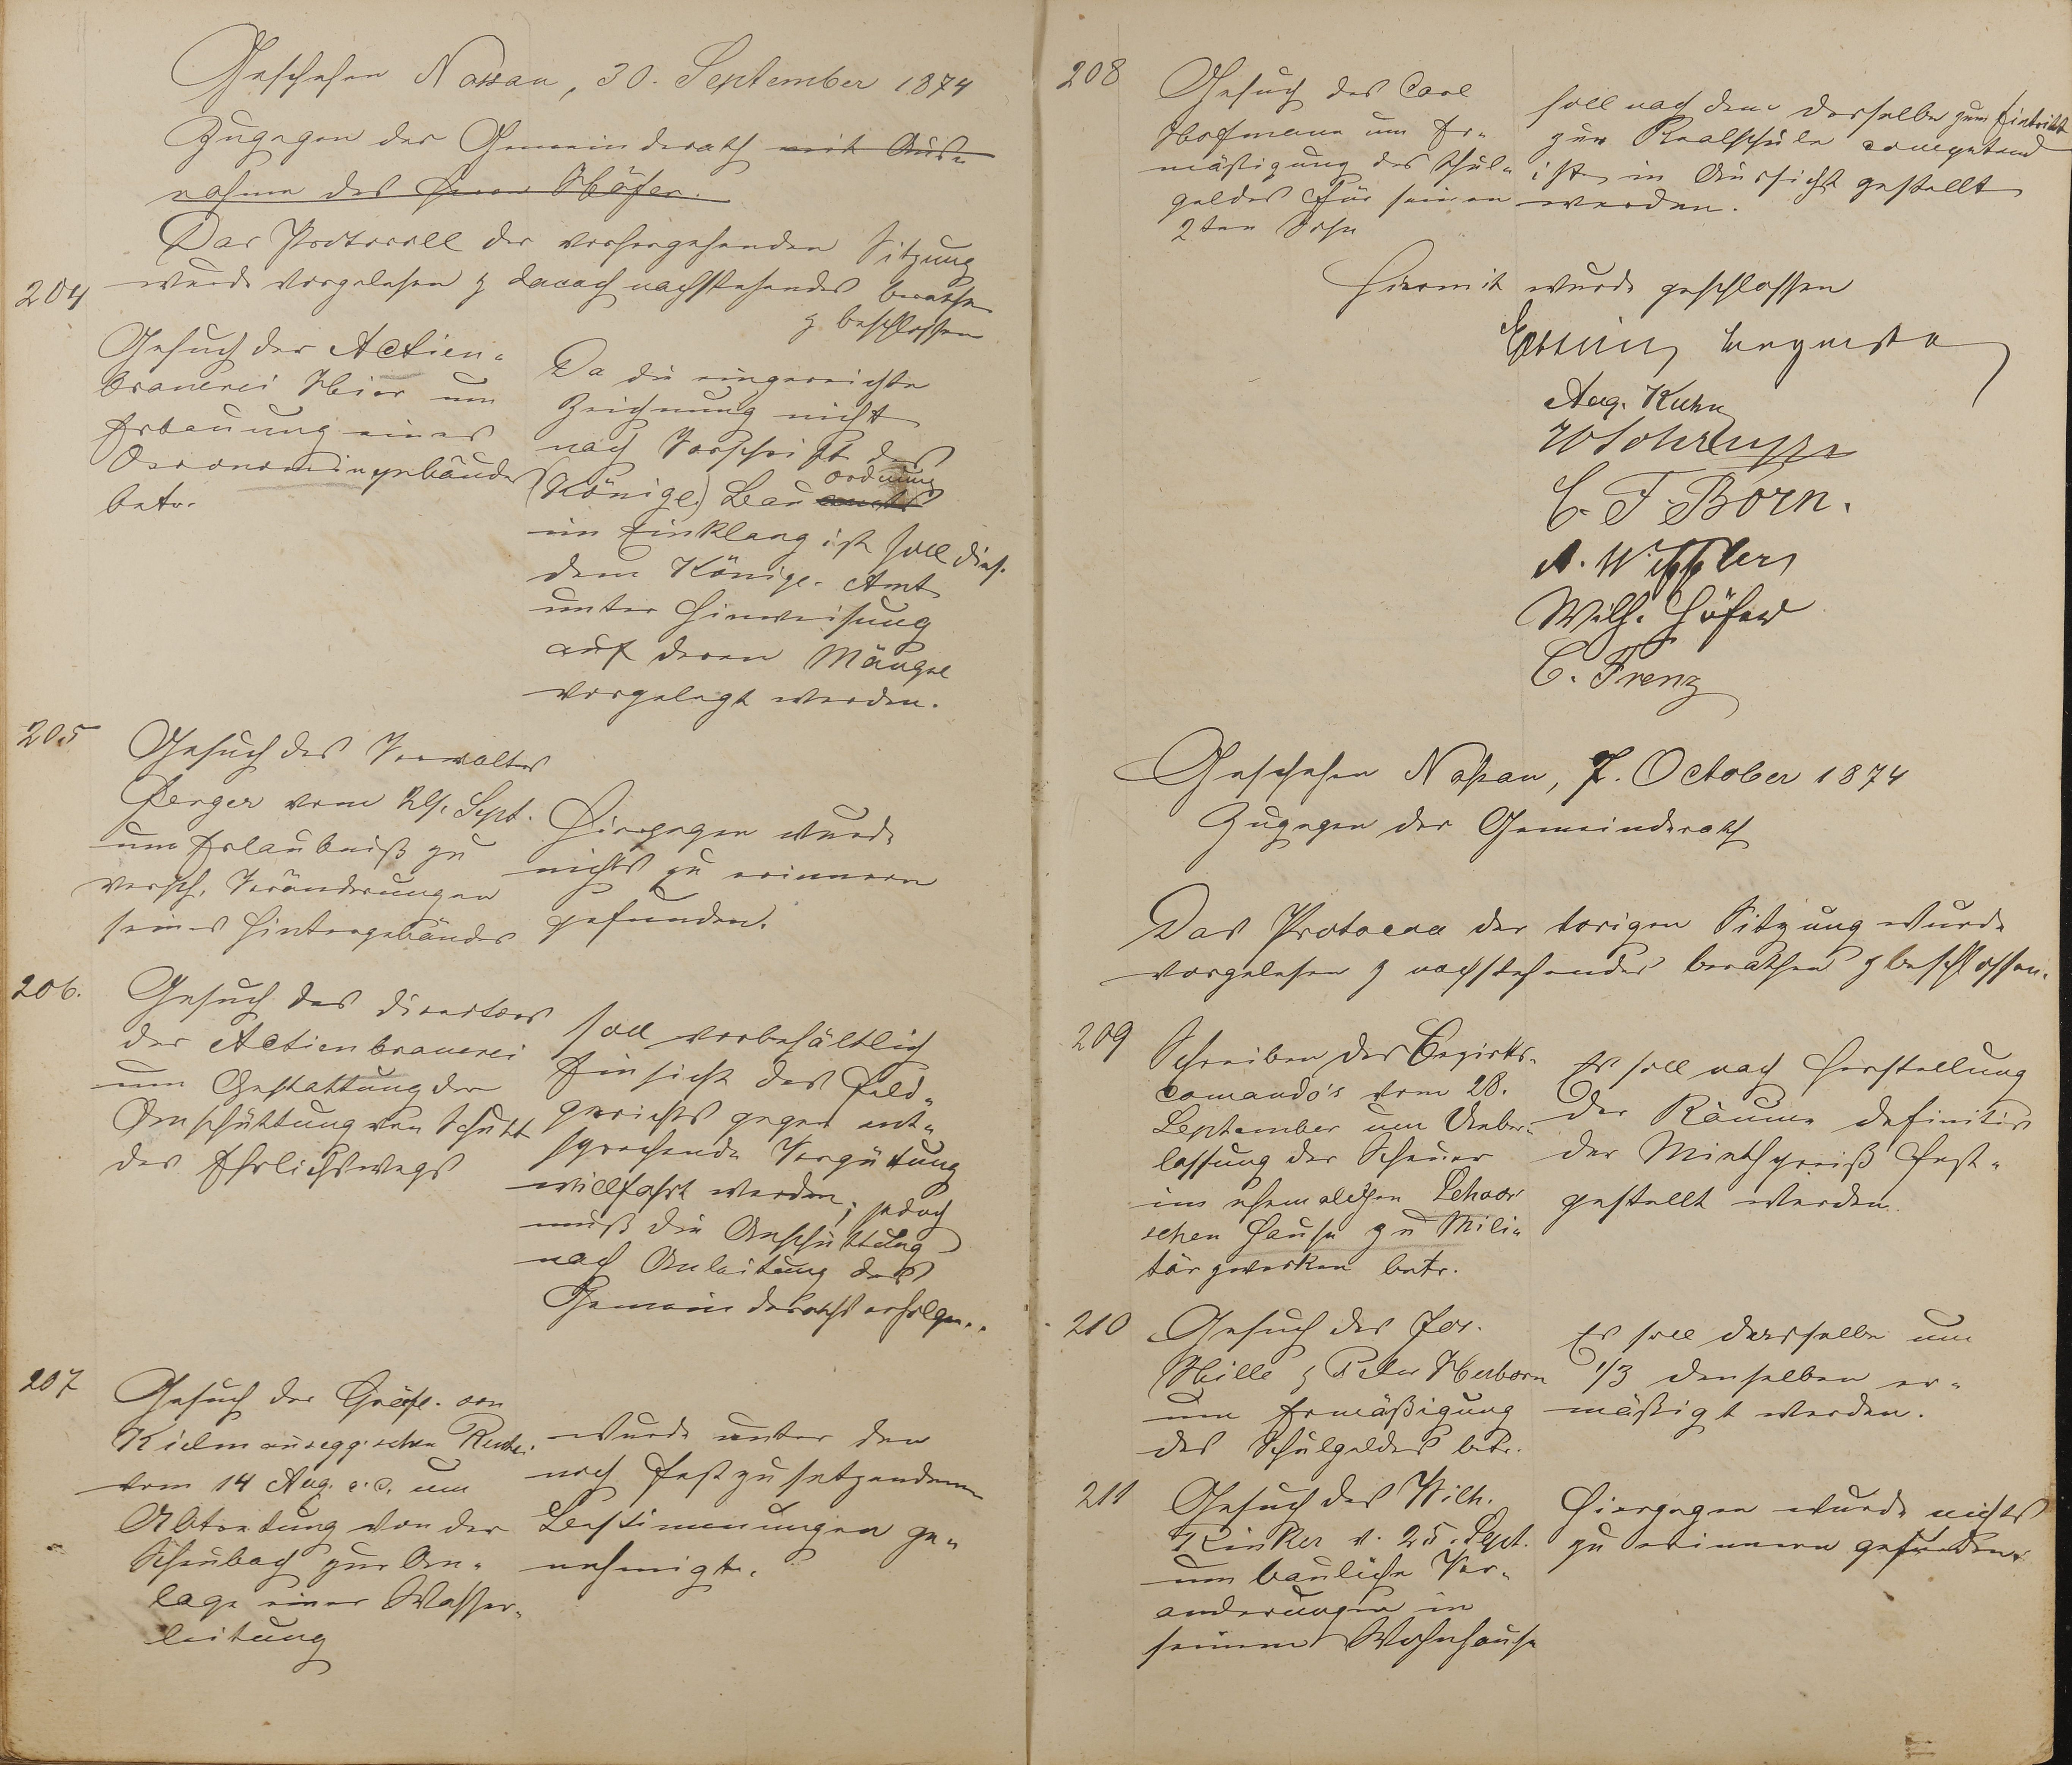 Geschehen Nassau, 30. September 1874
Zugegen der Gemeinderath mit Aus-
nahme des Herrn Höfer.
Das Protocoll der vorhergehenden Sitzung
204
wurde vorgelesen & danach nachstehendes berathen
& beschlossen
Gesuch der Actien-
brauerei Hier um
Erbauung eines
Oeconomiegebäudes
betr.
Da die eingereichte
Zeichnung nicht
nach Vorschrift der
ordnung
(Königl.) Bau amts
im Einklang ist soll dies.
dem Königl. Amt
unter Hinweisung
auf deren Mängel
vorgelegt werden.
205
Gesuch des Verwalters
Berger vom 21. Sept.
um Erlaubniß zu
versch. Veränderungen
seines Hintergebäudes
Hiergegen wurde
nichts zu erinnern
gefunden.
206.
Gesuch des Directors
der Actienbrauerei
um Gestattung der
Anschüttung von Schutt
des Ehrlichswegs
soll vorbehältlich
Einsicht des Feld-
gerichts gegen ent-
sprechende Vergütung
willfahrt werden; jedoch
muß die Anschüttung
nach Anleitung des
Gemeinderaths erfolgen..
207
Gesuch der Gräfl. von
Kielmanseggischen Rentei.
vom 14 Aug. a. c. um
Abtretung von der
Scheubach zur An-
lage einer Wasser-
leitung
wurde unter den
noch festzusetzenden
Bestimmungen ge-
nehmigt.
208
Gesuch des Carl
Hofmann um Er-
mäßigung des Schul-
geldes für seinen
2ten Sohn
soll nach dem derselbe zum Eintritt
zur Realschule competend
ist, in Aussicht gestellt
werden.
Hiermit wurde geschlossen
Aug. Kuhn
C. F. Born.
Wilh. Höfer
C. Trenz
Geschehen Nassau, 7. October 1874
Zugegen der Gemeinderath
Das Protocoll der vorigen Sitzung wurde
vorgelesen & nachstehendes berathen & beschlossen.
209
Schreiben des Bezirks-
comando's vom 28.
September um Ueber-
lassung der Scheuer
im ehemaligen
schen Hause zu Mili-
tärzwecken betr.
Es soll nach Herstellung
der Räume definitiv
der Miethpreiß fest-
gestellt werden.
210
Gesuch des Jos.
Hille & Peter Herborn
um Ermäßigung
des Schulgeldes betr.
Es soll dasselbe um
1/3 denselben er-
mäßigt werden.
211
Gesuch des Wilh.
Rinker v. 25. Sept.
um bauliche Ver-
änderungen in
seinem Wohnhause
Hiergegen wurde nichts
zu erinnern gefunden.